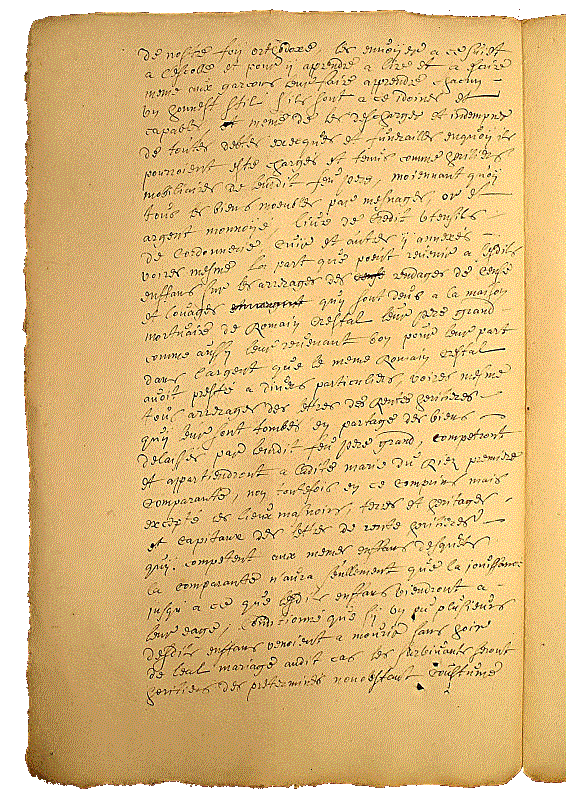 de nostre foy orthodoxe, les envoyer a ce suiet
a l'escolle et pour y aprendre a lire et a escrire
meme aux garcons leur faire aprendre chacun
un honnest stil s'ils sont a ce idoines et
capables, et meme de les descharger et indempner
de toutes debtes execques et funerailles enquoy ils
pouroient estre chargés et tenus comme heritiers
mobiliaires de leurdit feu pere, moiennant quoy
tous les biens moeubles par mesnages, or et
argent monnoyé, livre de credit utensils
de Cordonnerie Cuir et autres y annexés
voires mesme la part que poeut revenir a lesdits
enffans sur les arrerages des rendages de cense
et louages qui sont deus a la maison
mortuaire de Romain Crestal leur pere grand
comme aussy leur revenant bon pour leur part
dans l'argent que le meme Romain Crestal
avoit presté a divers particuliers, voires mesme
tous arrerages des lettres de rentes heritieres
qui leur sont tombés en partage des biens
delaissés par leurdit feu pere grand, competront
et appartiendront a ladite marie du Riez premiere
comparante, non toutefois en ce comprins mais
excepté les lieux manoirs, terres et heritages
et capitaux des lettres de rente heritieres
qui competent aux memes enffans desquels
la comparante n'aura seullement que la jouissance
jusqu'a ce que lesdits enffans viendront a
leur eage, Conditionné que sy un ou plusieurs
desdits enffans venoient a mourir sans hoir
de leal mariage audit cas les survivants seront
heritiers des predeterminés nonobstant Coustume